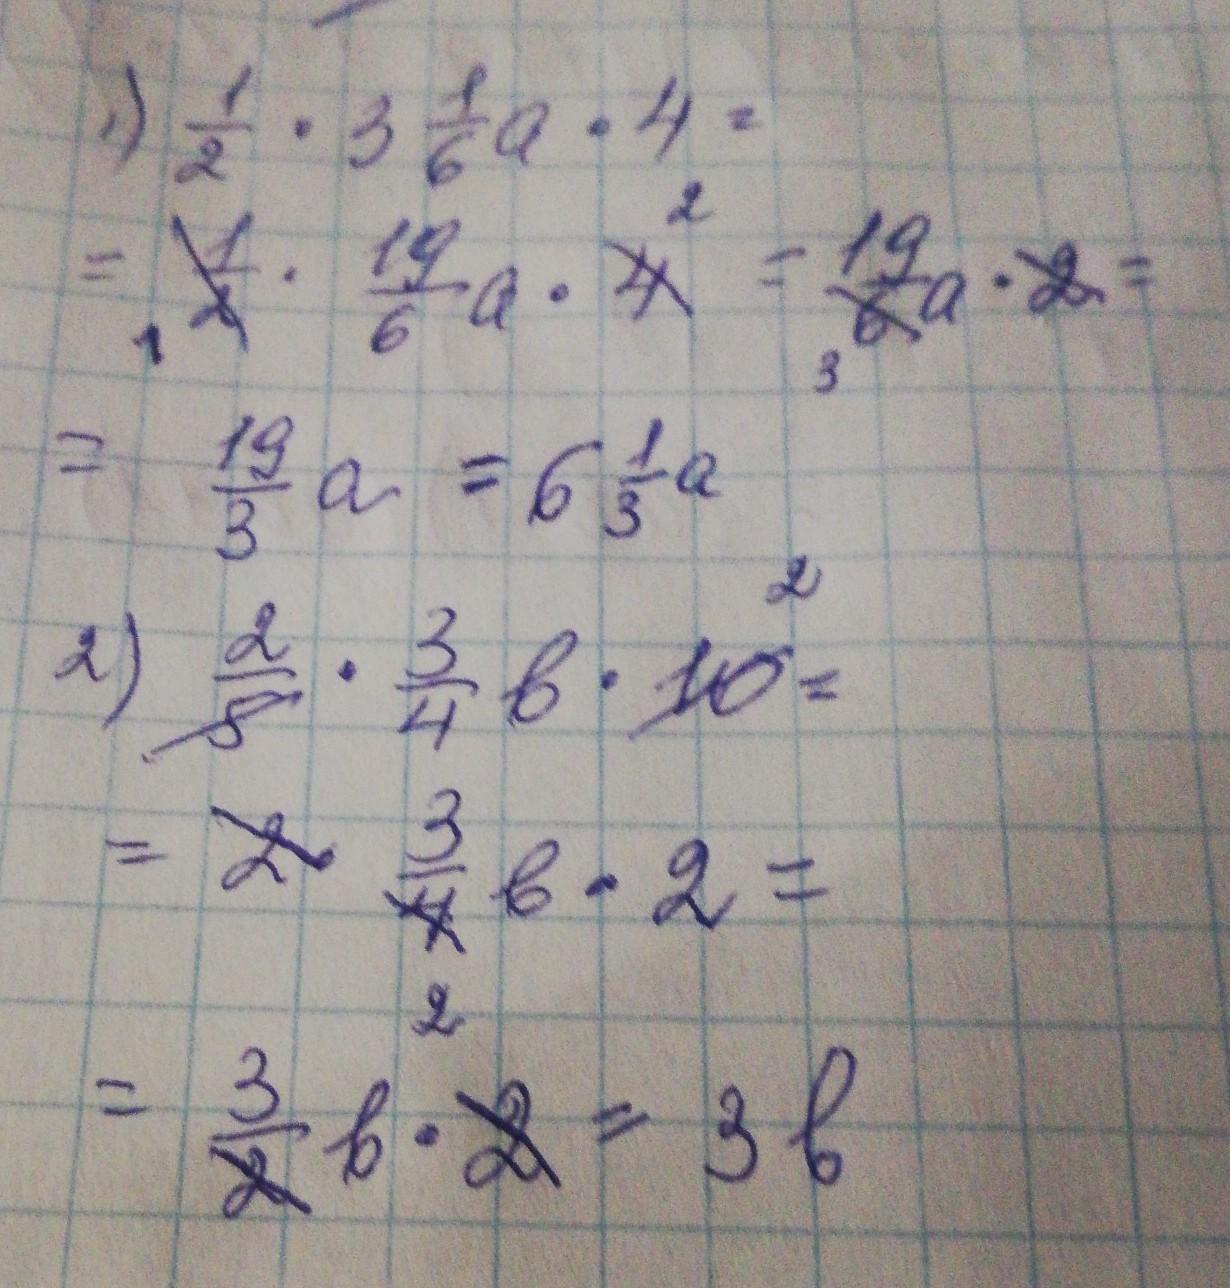 1) 1/2 · 3 1/6 a · 4 =
= 1/2 · 19/6 a · 4 2 = 19/6 a · 2 =
1 3
= 19/3 a = 6 1/3 a
2) 2/5 · 3/4 b · 10 2 =
= 2 · 3/4 b · 2 =
2
= 3/2 b · 2 = 3 b